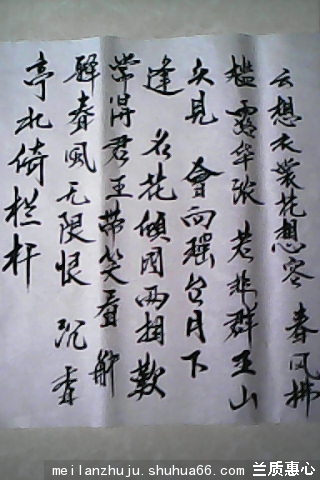 云想衣裳花想容 春风拂
槛露华浓 若非群玉山
头见 會向瑶台月下
逢 名花倾國两相歡
常得君王带笑看 解
释春風无限恨 沉香
亭北倚栏杆
meilanzhuju.shuhua66.com 兰质惠心